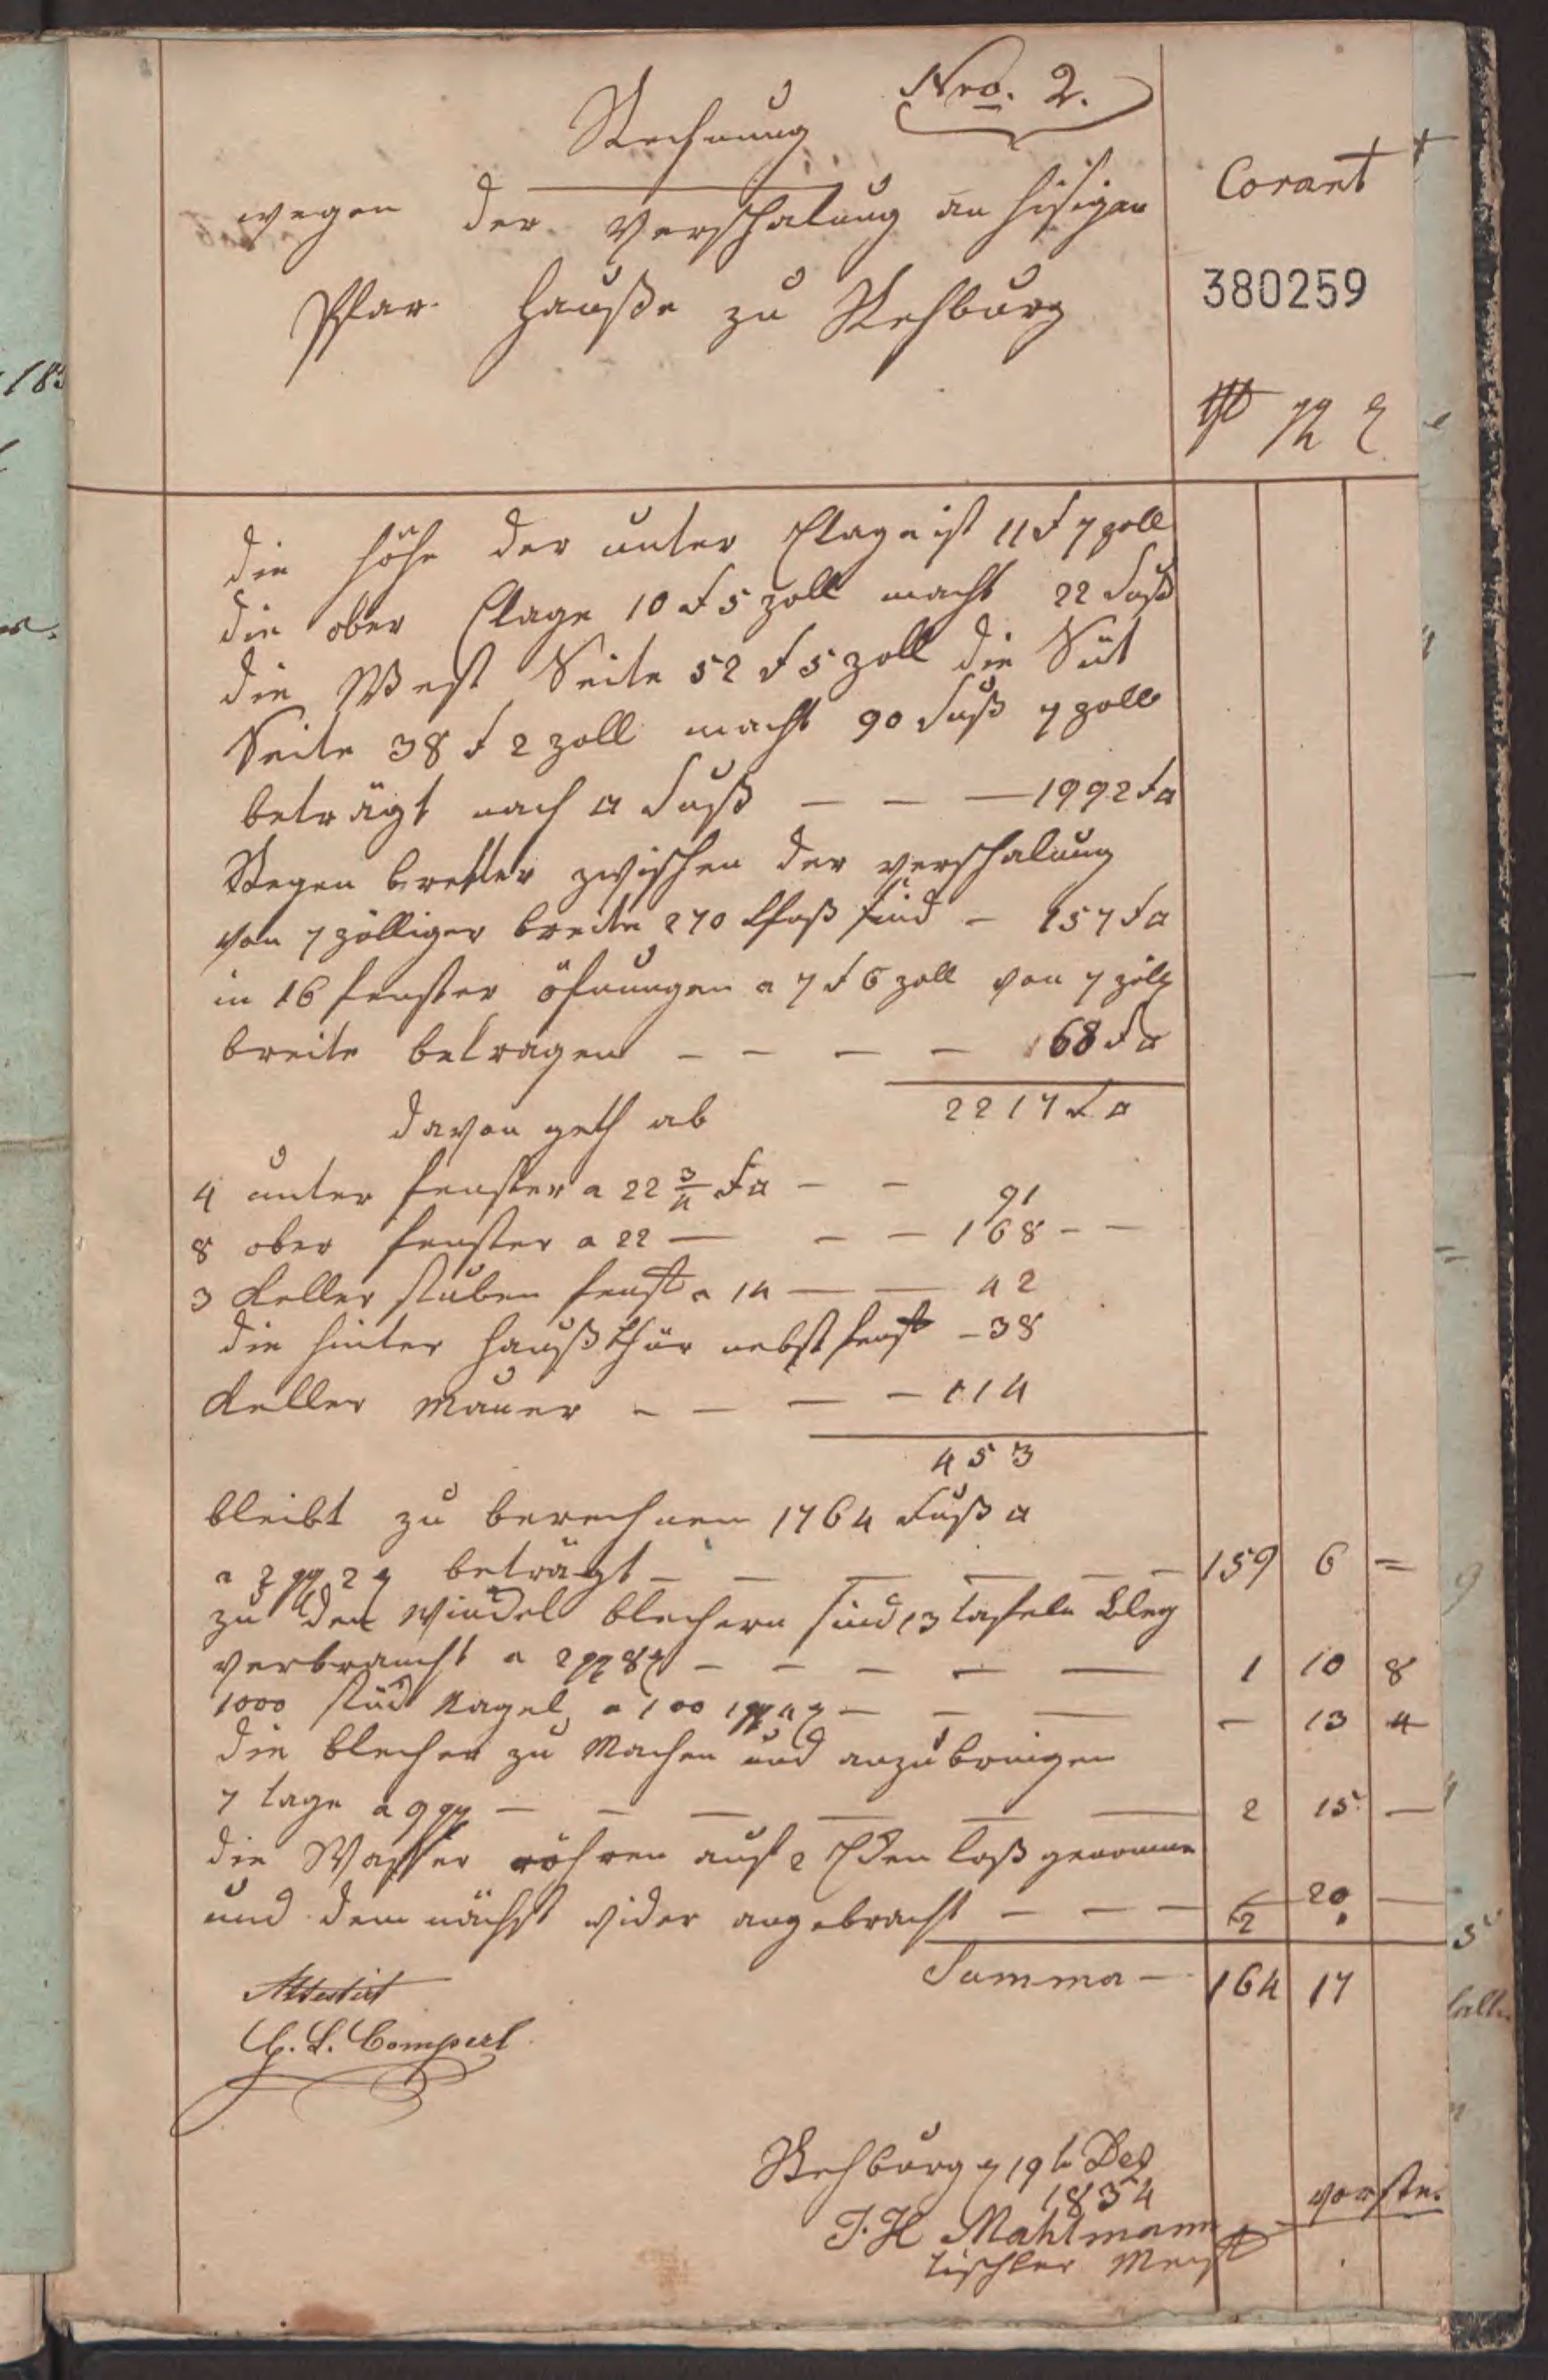 Nro. 2.
Rechnung
wegen der Verschalung an hisigen
Pfar Hauße zu Rehburg
Corant
380259
die Höhe der unter Etage ist 11 F 7 zoll
die ober Etage 10 F 5 zoll macht 22 Fuß
die West Seite 52 F 5 zoll die Süt
Seite 38 F 2 zoll macht 90 Fuß 7 zoll
beträgt nach □ Fuß — — — 1992 F □
Regen bretter zwischen der verschalung
von 7 zölliger breite 270 lfuß sind — 157 F □
in 16 fenster öfnungen a 7 F 6 zoll von 7 zöll
breite betragen — — — — 68 F □
2217 F □
davon geth ab
4 unter fenster a 22 3/4 F □ — — 91
8 ober fenster a 22 — — — 168 — —
3 Keller stuben fenst a 14 — — 42
die hinter Haußthür nebst fenst — 38
Keller Mauer — — — — 114
453
bleibt zu berechnen 1764 Fuß □
a 2 ggr 2 ₰ beträgt — — — — — — 159 6 =
zu den Windel blechern sind 13 tafeln Bleg
verbraucht a 2 ggr 8 ₰ — — — — — 1 10 8
1000 stück Nagel a 100 1 ggr 4 ₰ — — — — 13 4
die blecher zu Machen und anzubringen
7 tage a 9 ggr — — — — — — 2 15 —
die Wasser röhren auf 2 Eken loß genomme
und dem nächst wider angebracht — — — 20 —
Summa — 164 17
Attestirt
Rehburg d 19t Dez
1834
J. H Mahlmann
tischler Meist
vorste.